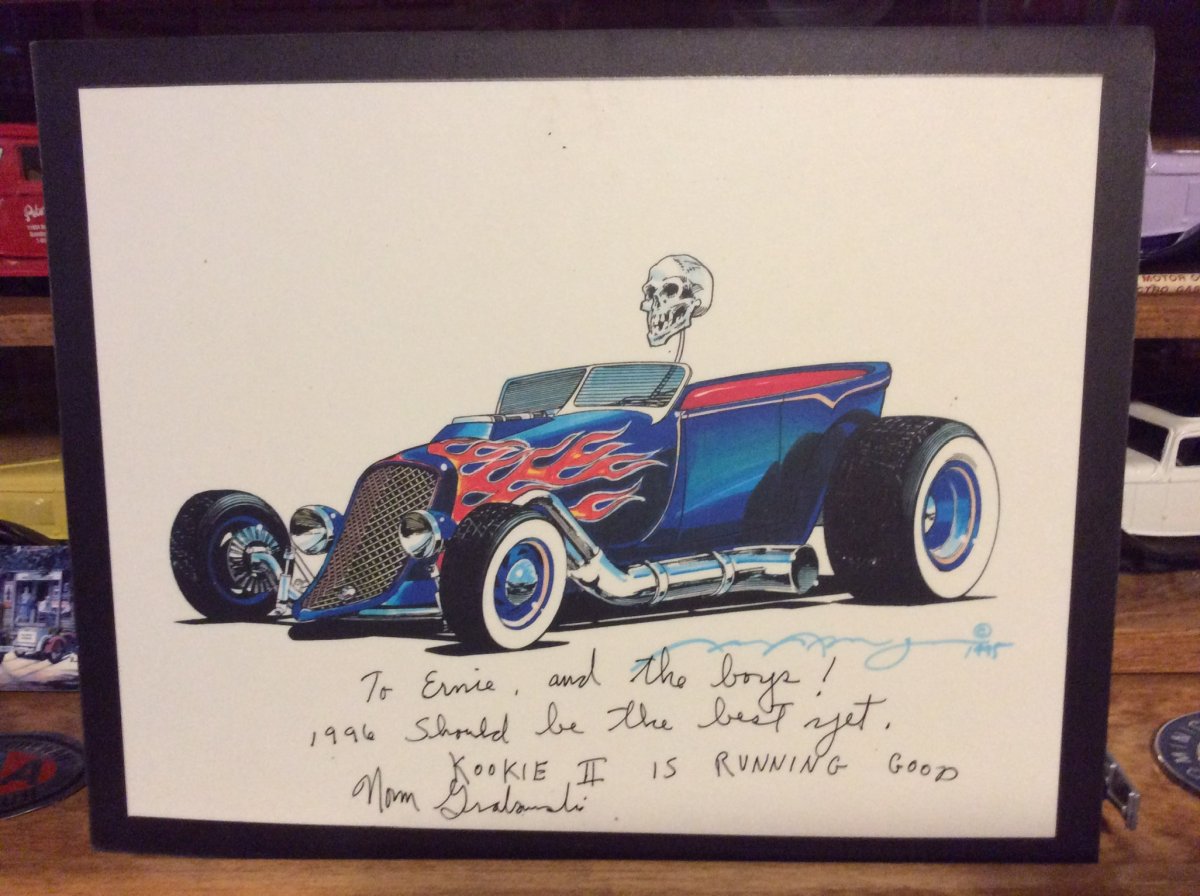 MOTOR
© 1995
To Ernie, and the boys!
1996 Should be the best yet.
KOOKIE II IS RUNNING GOOD
Norm Grabowski